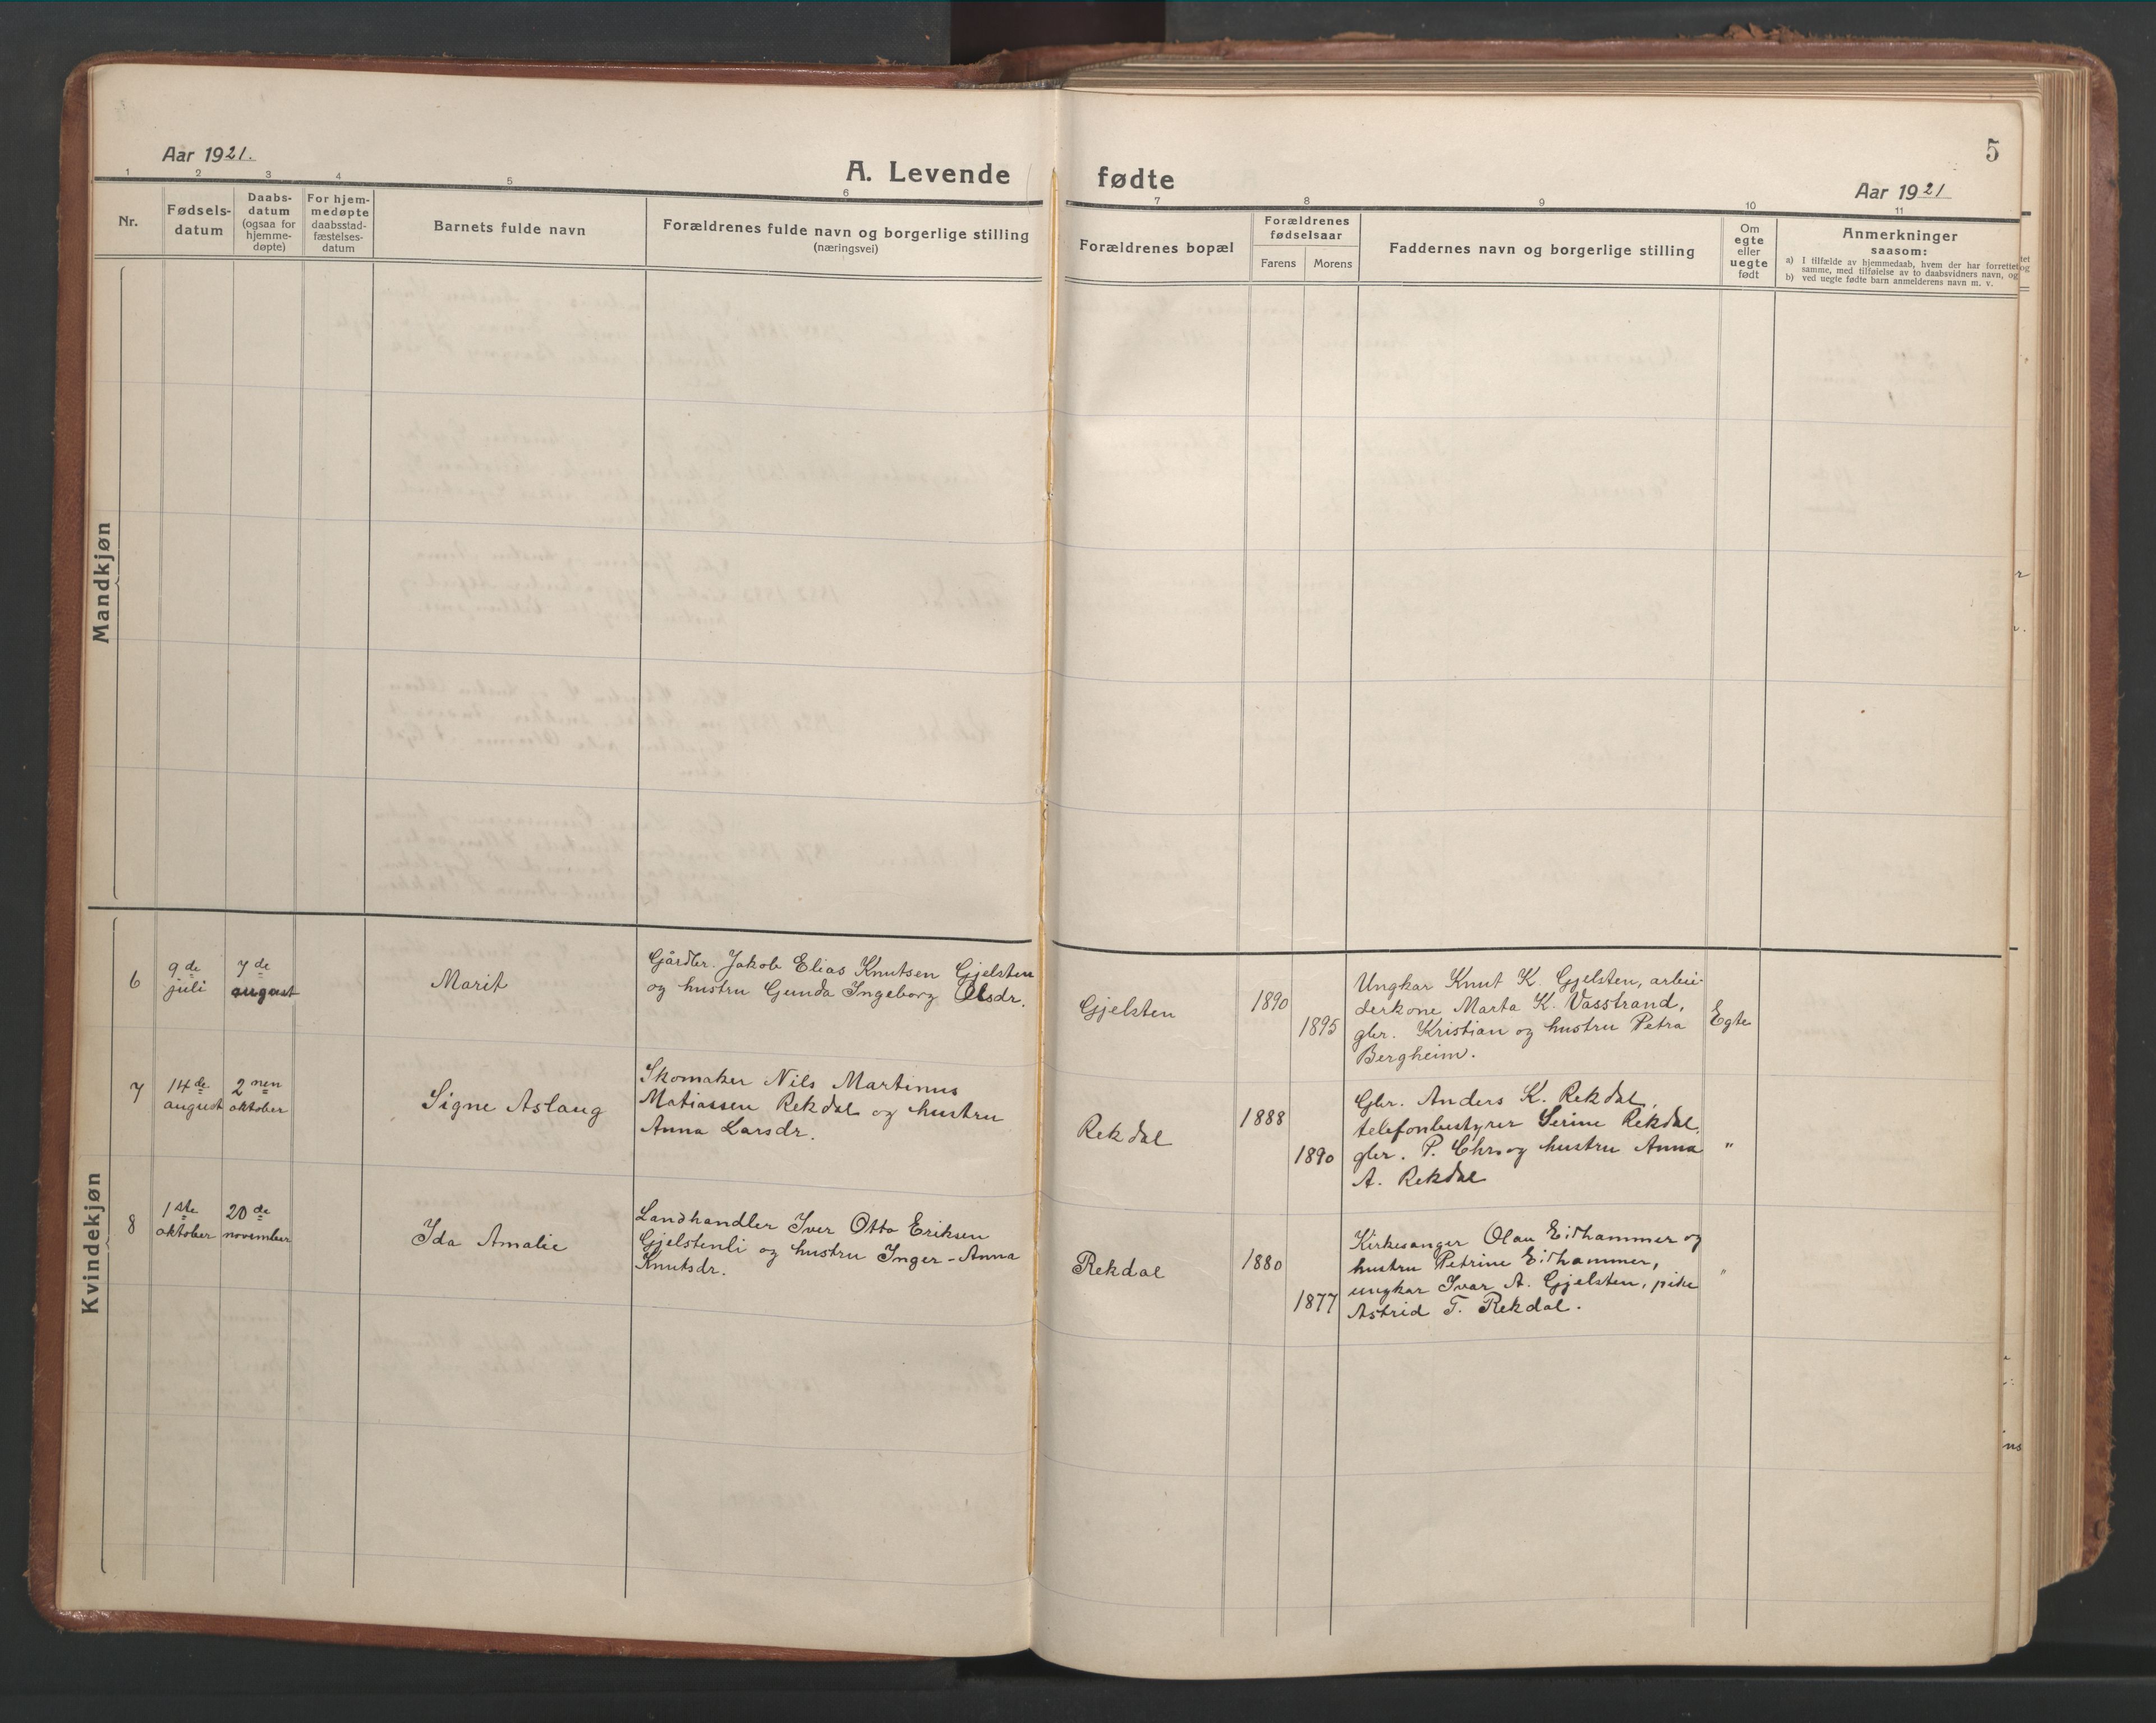 Aar 1921.
A. Levende fødte
5
Aar 1921
1 2 3 4 5 6 7 8 9 10 11
Nr.
Fødsels-
datum
Daabs-
datum
(ogsaa for
hjemme-
døpte)
For hjem-
medøpte
daabsstad-
fæstelses-
datum
Barnets fulde navn
Forældrenes fulde navn og borgerlige stilling
(næringsvei)
Forældrenes bopæl
Forældrenes
fødselsaar
Farens Morens
Faddernes navn og borgerlige stilling
Om
egte
eller
uegte
født
Anmerkninger
saasom:
a) I tilfælde av hjemmedaab, hvem der har forrettet
samme, med tilføielse av to daabsvidners navn, og
b) ved uegte fødte barn anmelderens navn m. v.
Mandkjøn
Kvindekjøn
6
9de
juli
7de
august
Marit
Gårdbr. Jakob Elias Knutsen Gjelsten
og hustru Gunda Ingeborg Olsdr.
Gjelsten
1890
1895
Ungkar Knut K. Gjelsten, arbei-
derkone Marta K. Vasstrand,
gbr. Kristian og hustru Petra
Bergheim.
Egte
7
14de
august
2nen
oktober
Signe Aslaug
Skomaker Nils Martinus
Matiassen Rekdal og hustru
Anna Larsdr.
Rekdal
1888
1890
Gbr. Anders K. Rekdal,
telefonbestyrer Serine Rekdal,
gbr. P. Chr. og hustru Anna
A. Rekdal
"
8
1ste
oktober
20de
november
Ida Amalie
Landhandler Iver Otto Eriksen
Gjelstenli og hustru Inger-Anna
Knutsdr.
Rekdal
1880
1877
Kirkesanger Olau Eidhammer og
hustru Petrine Eidhammer,
ungkar Ivar A. Gjelsten, pike
Astrid T. Rekdal.
"